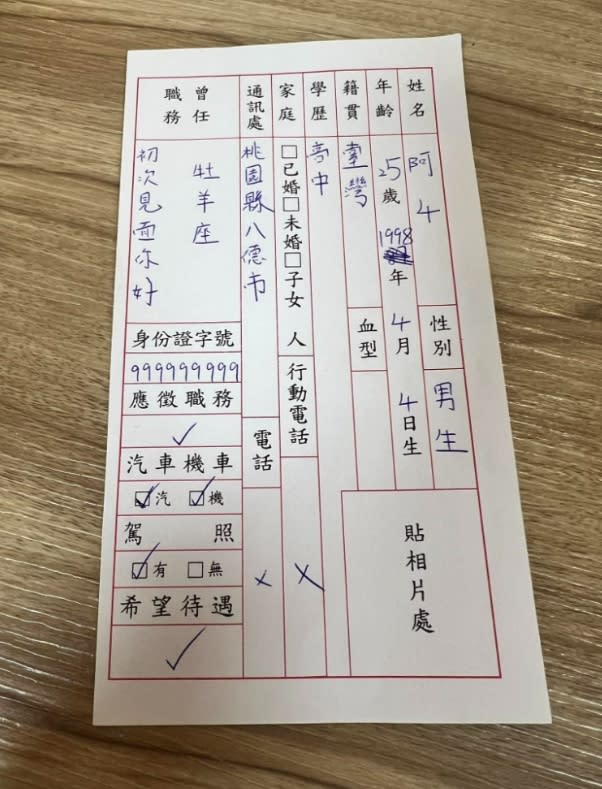 姓名 阿4
性別 男生
年齡 25歲 1998年 4月 4日生
籍貫 臺灣
血型
貼相片處
學歷 高中
家庭 □已婚□未婚□子女 人
行動電話 ×
通訊處 桃園縣八德市
電話 ×
曾任職務
牡羊座
初次見面你好
身份證字號
999999999
應徵職務
✓
汽車機車
☑汽 ☑機
駕照
☑有 □無
希望待遇
✓